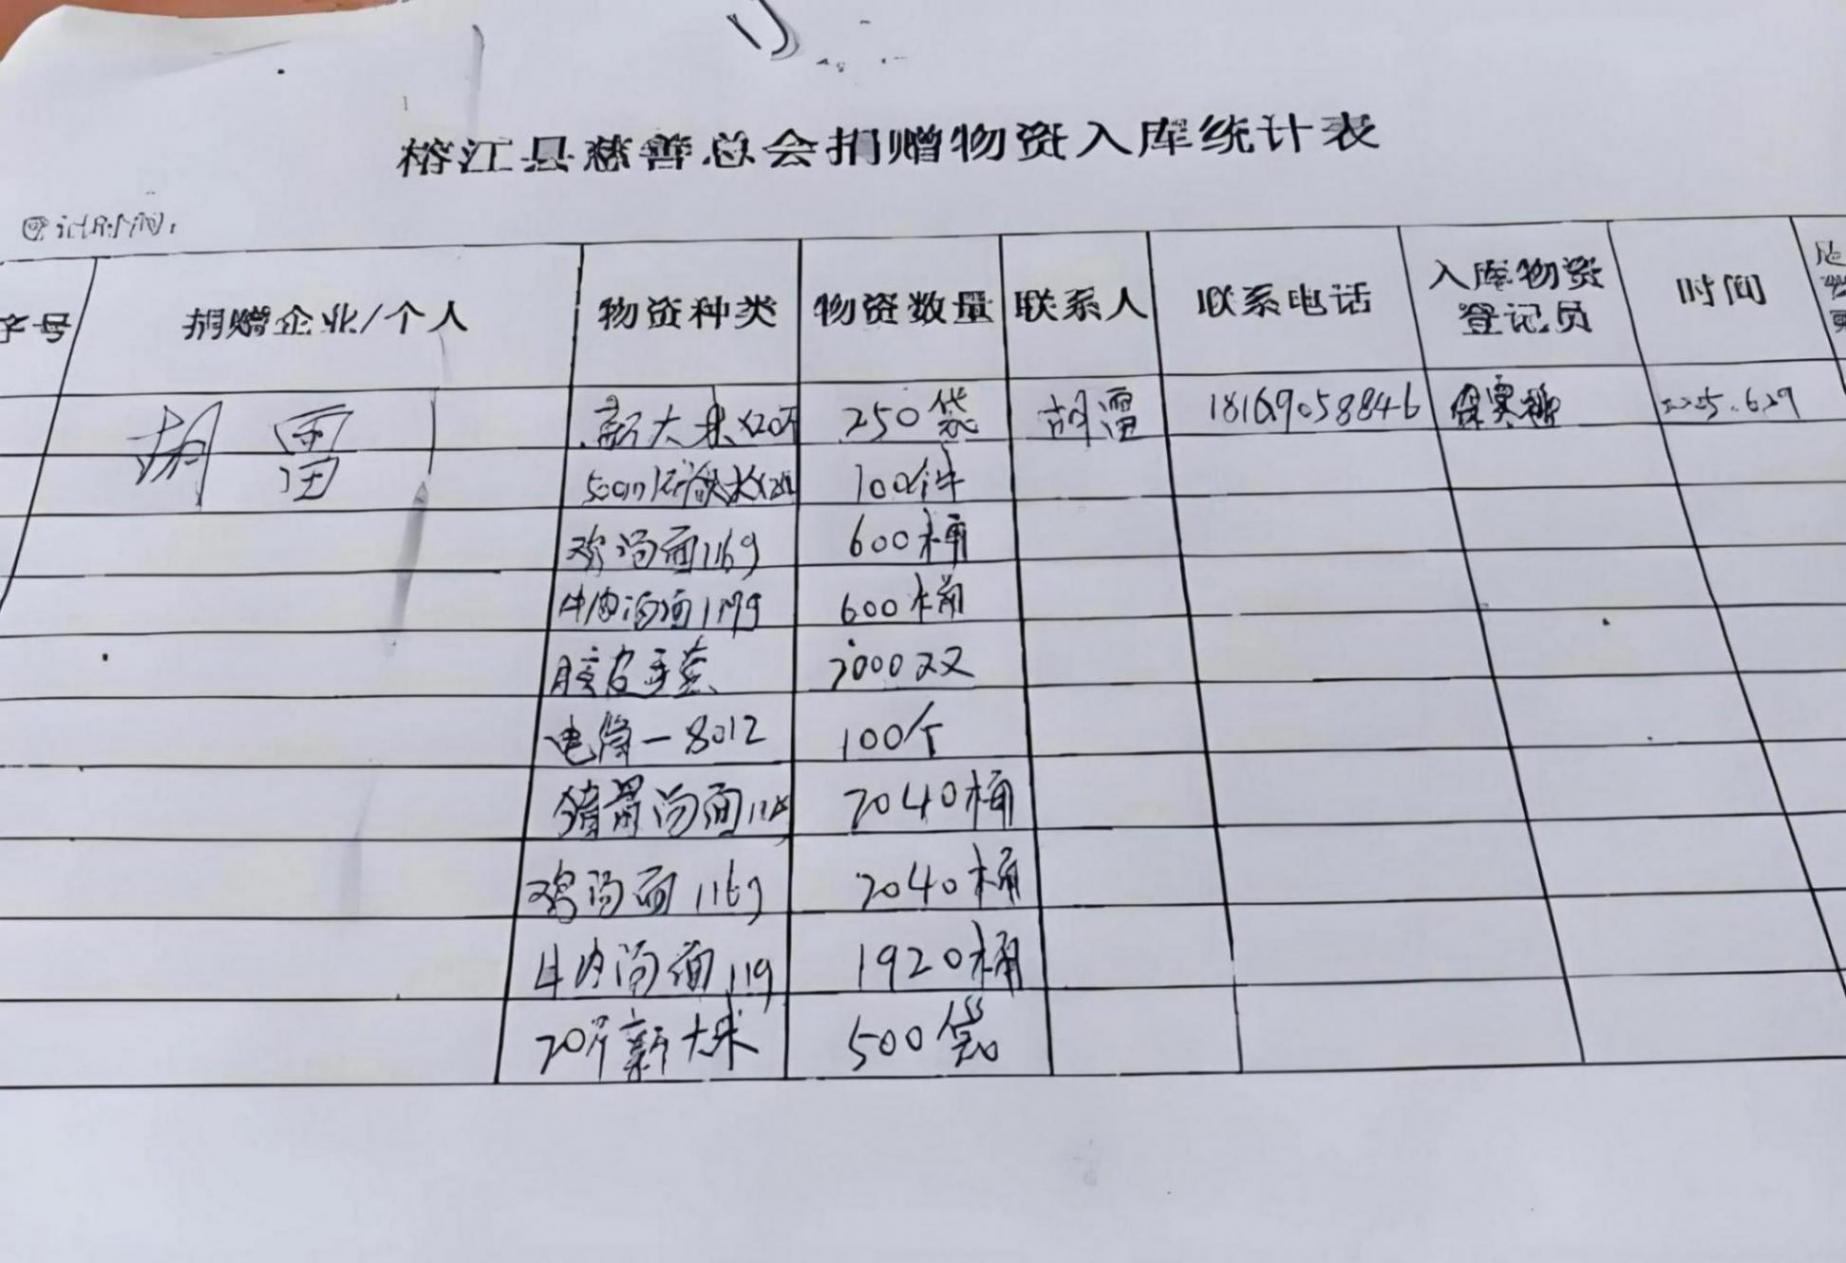 榕江县慈善总会捐赠物资入库统计表
登记时间:
序号 捐赠企业/个人 物资种类 物资数量 联系人 联系电话 入库物资登记员 时间
胡雷 新大米x20斤 250袋 胡雷 18169058846 2025.6.29
500ml矿泉水 100件
鸡汤面116g 600桶
牛肉汤面119g 600桶
胶皮手套 2000双
电筒-8012 100个
汤面 2040桶
鸡汤面116g 2040桶
牛肉汤面119 1920桶
20斤新大米 500袋